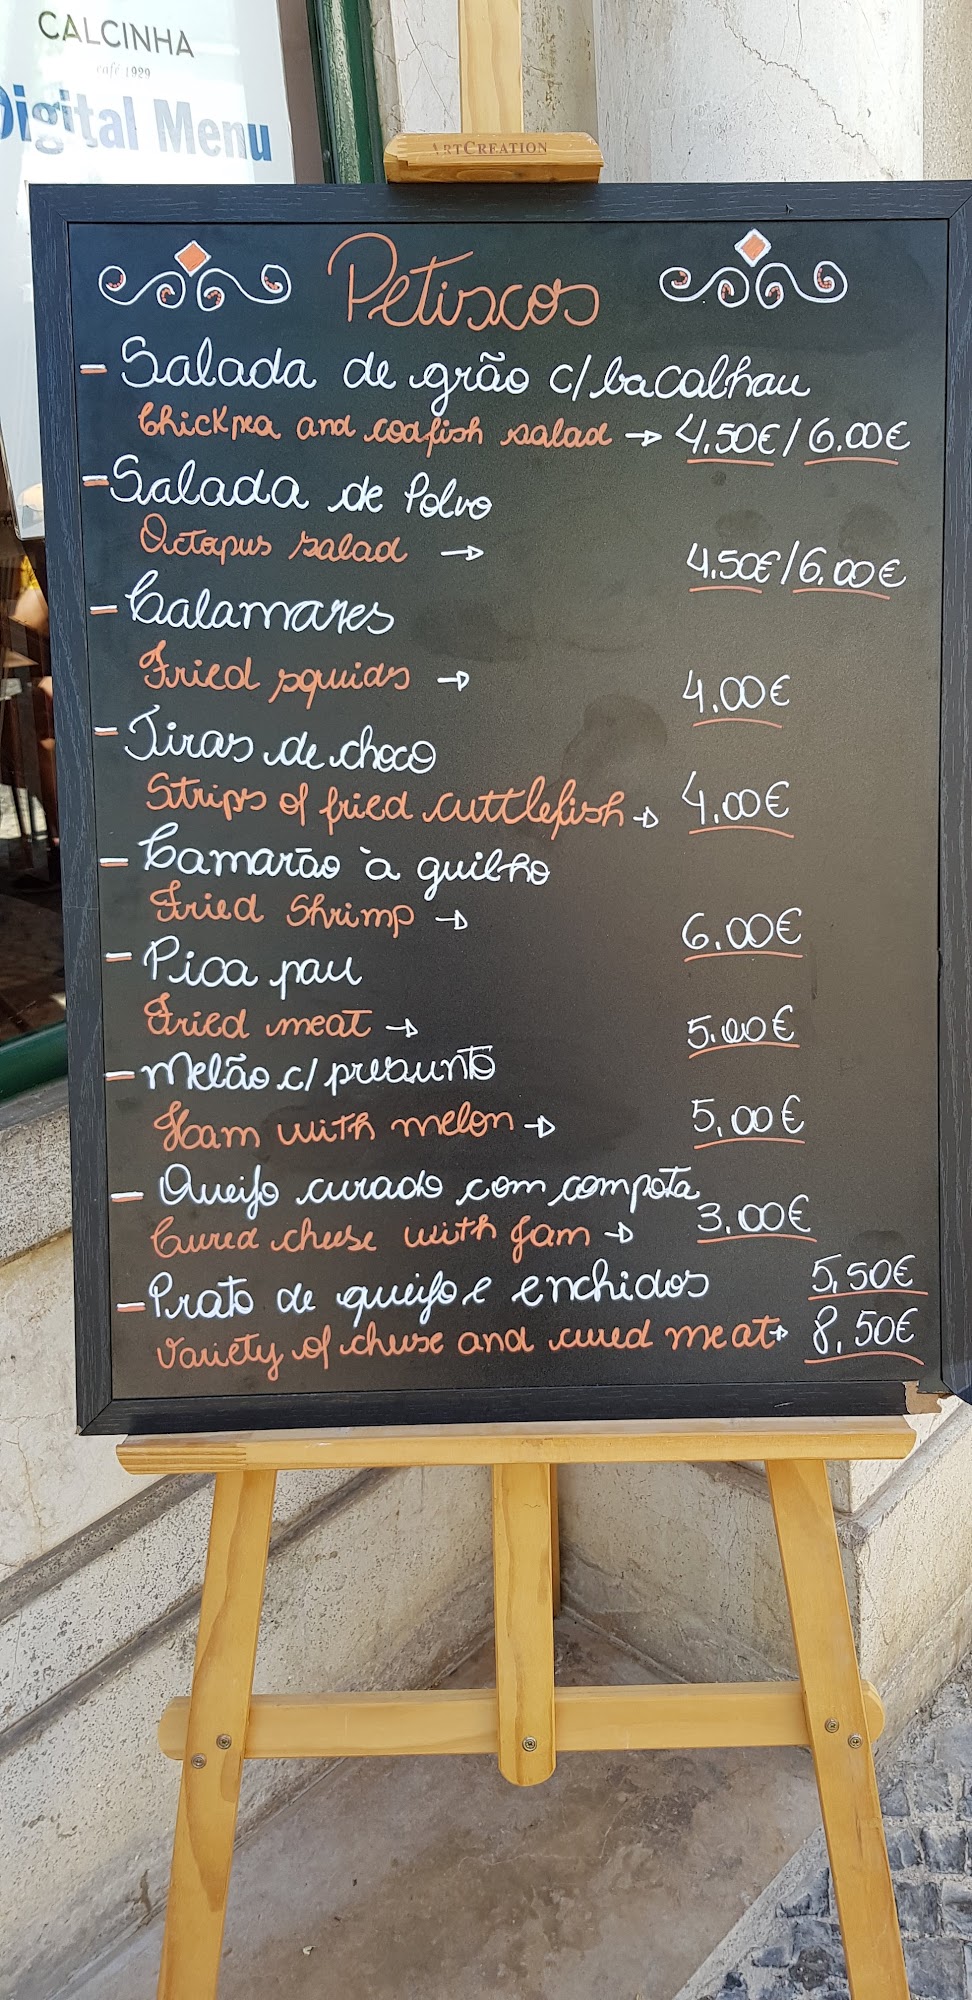 CALCINHA
café 1929
Digital Menu
ARTCREATION
Petiscos
- Salada de grão c/ bacalhau
Chickpea and codfish salad → 4.50€ / 6.00€
- Salada de Polvo
Octapus salad → 4.50€ / 6.00€
- Calamares
Fried squids → 4.00€
- Tiras de choco
Strips of fried cuttlefish → 4.00€
- Camarão à guilho
Fried Shrimp → 6.00€
- Pica pau
Fried meat → 5.00€
- Melão c/ presunto
Ham with melon → 5,00€
- Queijo curado com compota
Cured cheese with jam → 3.00€
- Prato de queijo e enchidos 5,50€
Variety of cheese and cured meat → 8,50€